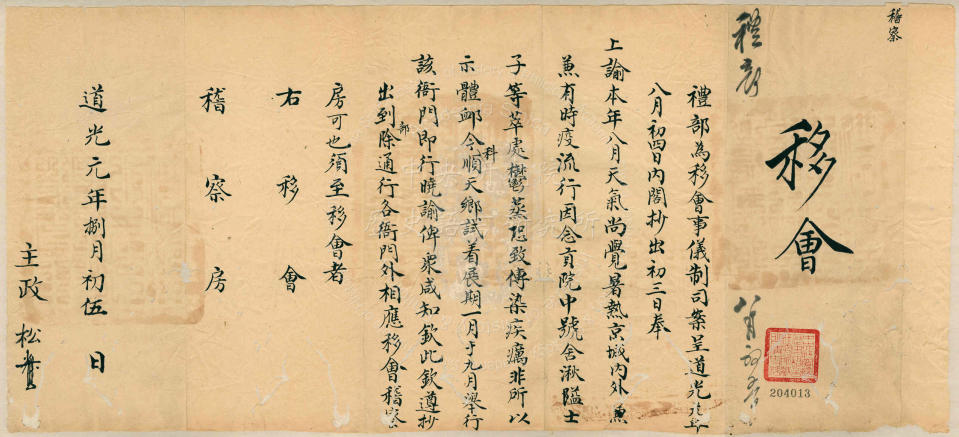 稽察
禮部
移會
八月初五日
204013
禮部為移會事儀制司案呈道光元年
八月初四日內閣抄出初三日奉
上諭本年八月天氣尚覺暑熱京城內外兼
兼有時疫流行因念貢院中號舍湫隘士
子等萃處鬱蒸恐致傳染疾癘非所以
示體卹今科順天鄉試着展期一月于九月舉行
該衙門即行曉諭俾眾咸知欽此欽遵抄
出到部除通行各衙門外相應移會稽察
房可也須至移會者
右移會
稽察房
道光元年捌月初伍日
主政松